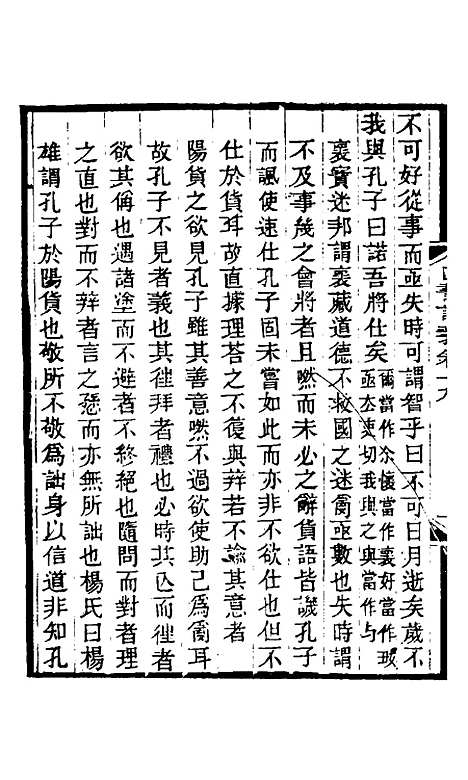 不可好從事而亟失時可謂智乎曰不可日月逝矣歲不
我與孔子曰諾吾將仕矣爾當作尒懷當作褱好當作𡚽亟去吏切我與之與當作与
褱寶迷邦謂褱藏道德不救國之迷亂亟數也失時謂
不及事幾之會將者且然而未必之辭貨語皆譏孔子
而諷使速仕孔子固未嘗如此而亦非不欲仕也但不
仕於貨耳故直據理荅之不復與辯若不諭其意者
陽貨之欲見孔子雖其善意然不過欲使助己爲亂耳
故孔子不見者義也其往拜者禮也必時其亾而往者
欲其稱也遇諸塗而不避者不終絕也隨問而對者理
之直也對而不辯者言之孫而亦無所詘也楊氏曰楊
雄謂孔子於陽貨也敬所不敬爲詘身以信道非知孔
四書